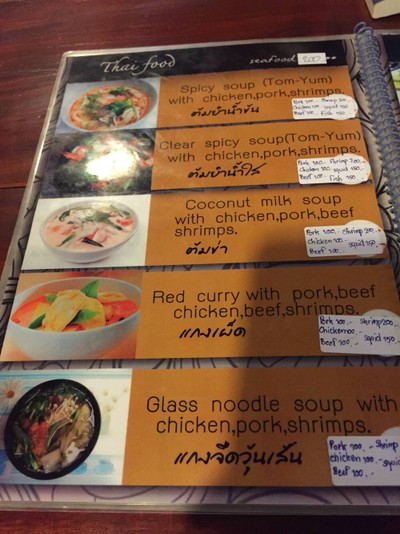 Thai food
seafood 200
Spicy soup (Tom-Yum)
with chicken,pork,shrimps.
ต้มยำน้ำข้น
Pork 100.- Shrimp 200.
Chicken 100.- squid 150
Beef 100.- Fish 150
Clear spicy soup(Tom-Yum)
with chicken,pork,shrimps.
ต้มยำน้ำใส
Pork 100.- Shrimp 200.-
Chicken 100.- squid 150.-
Beef 100.- Fish 150.-
Coconut milk soup
with chicken,pork,beef
shrimps.
ต้มข่า
Pork 100.- Shrimp 200.-
chicken 100.- squid 150.-
Beef 100.-
Red curry with pork,beef
chicken,beef,shrimps.
แกงเผ็ด
Pork 100.- Shrimp 200.
Chicken 100.-
Beef 100.- squid 150
Glass noodle soup with
chicken,pork,shrimps.
แกงจืดวุ้นเส้น
Pork 100.- Shrimp
chicken 100.- squid
Beef 100.-